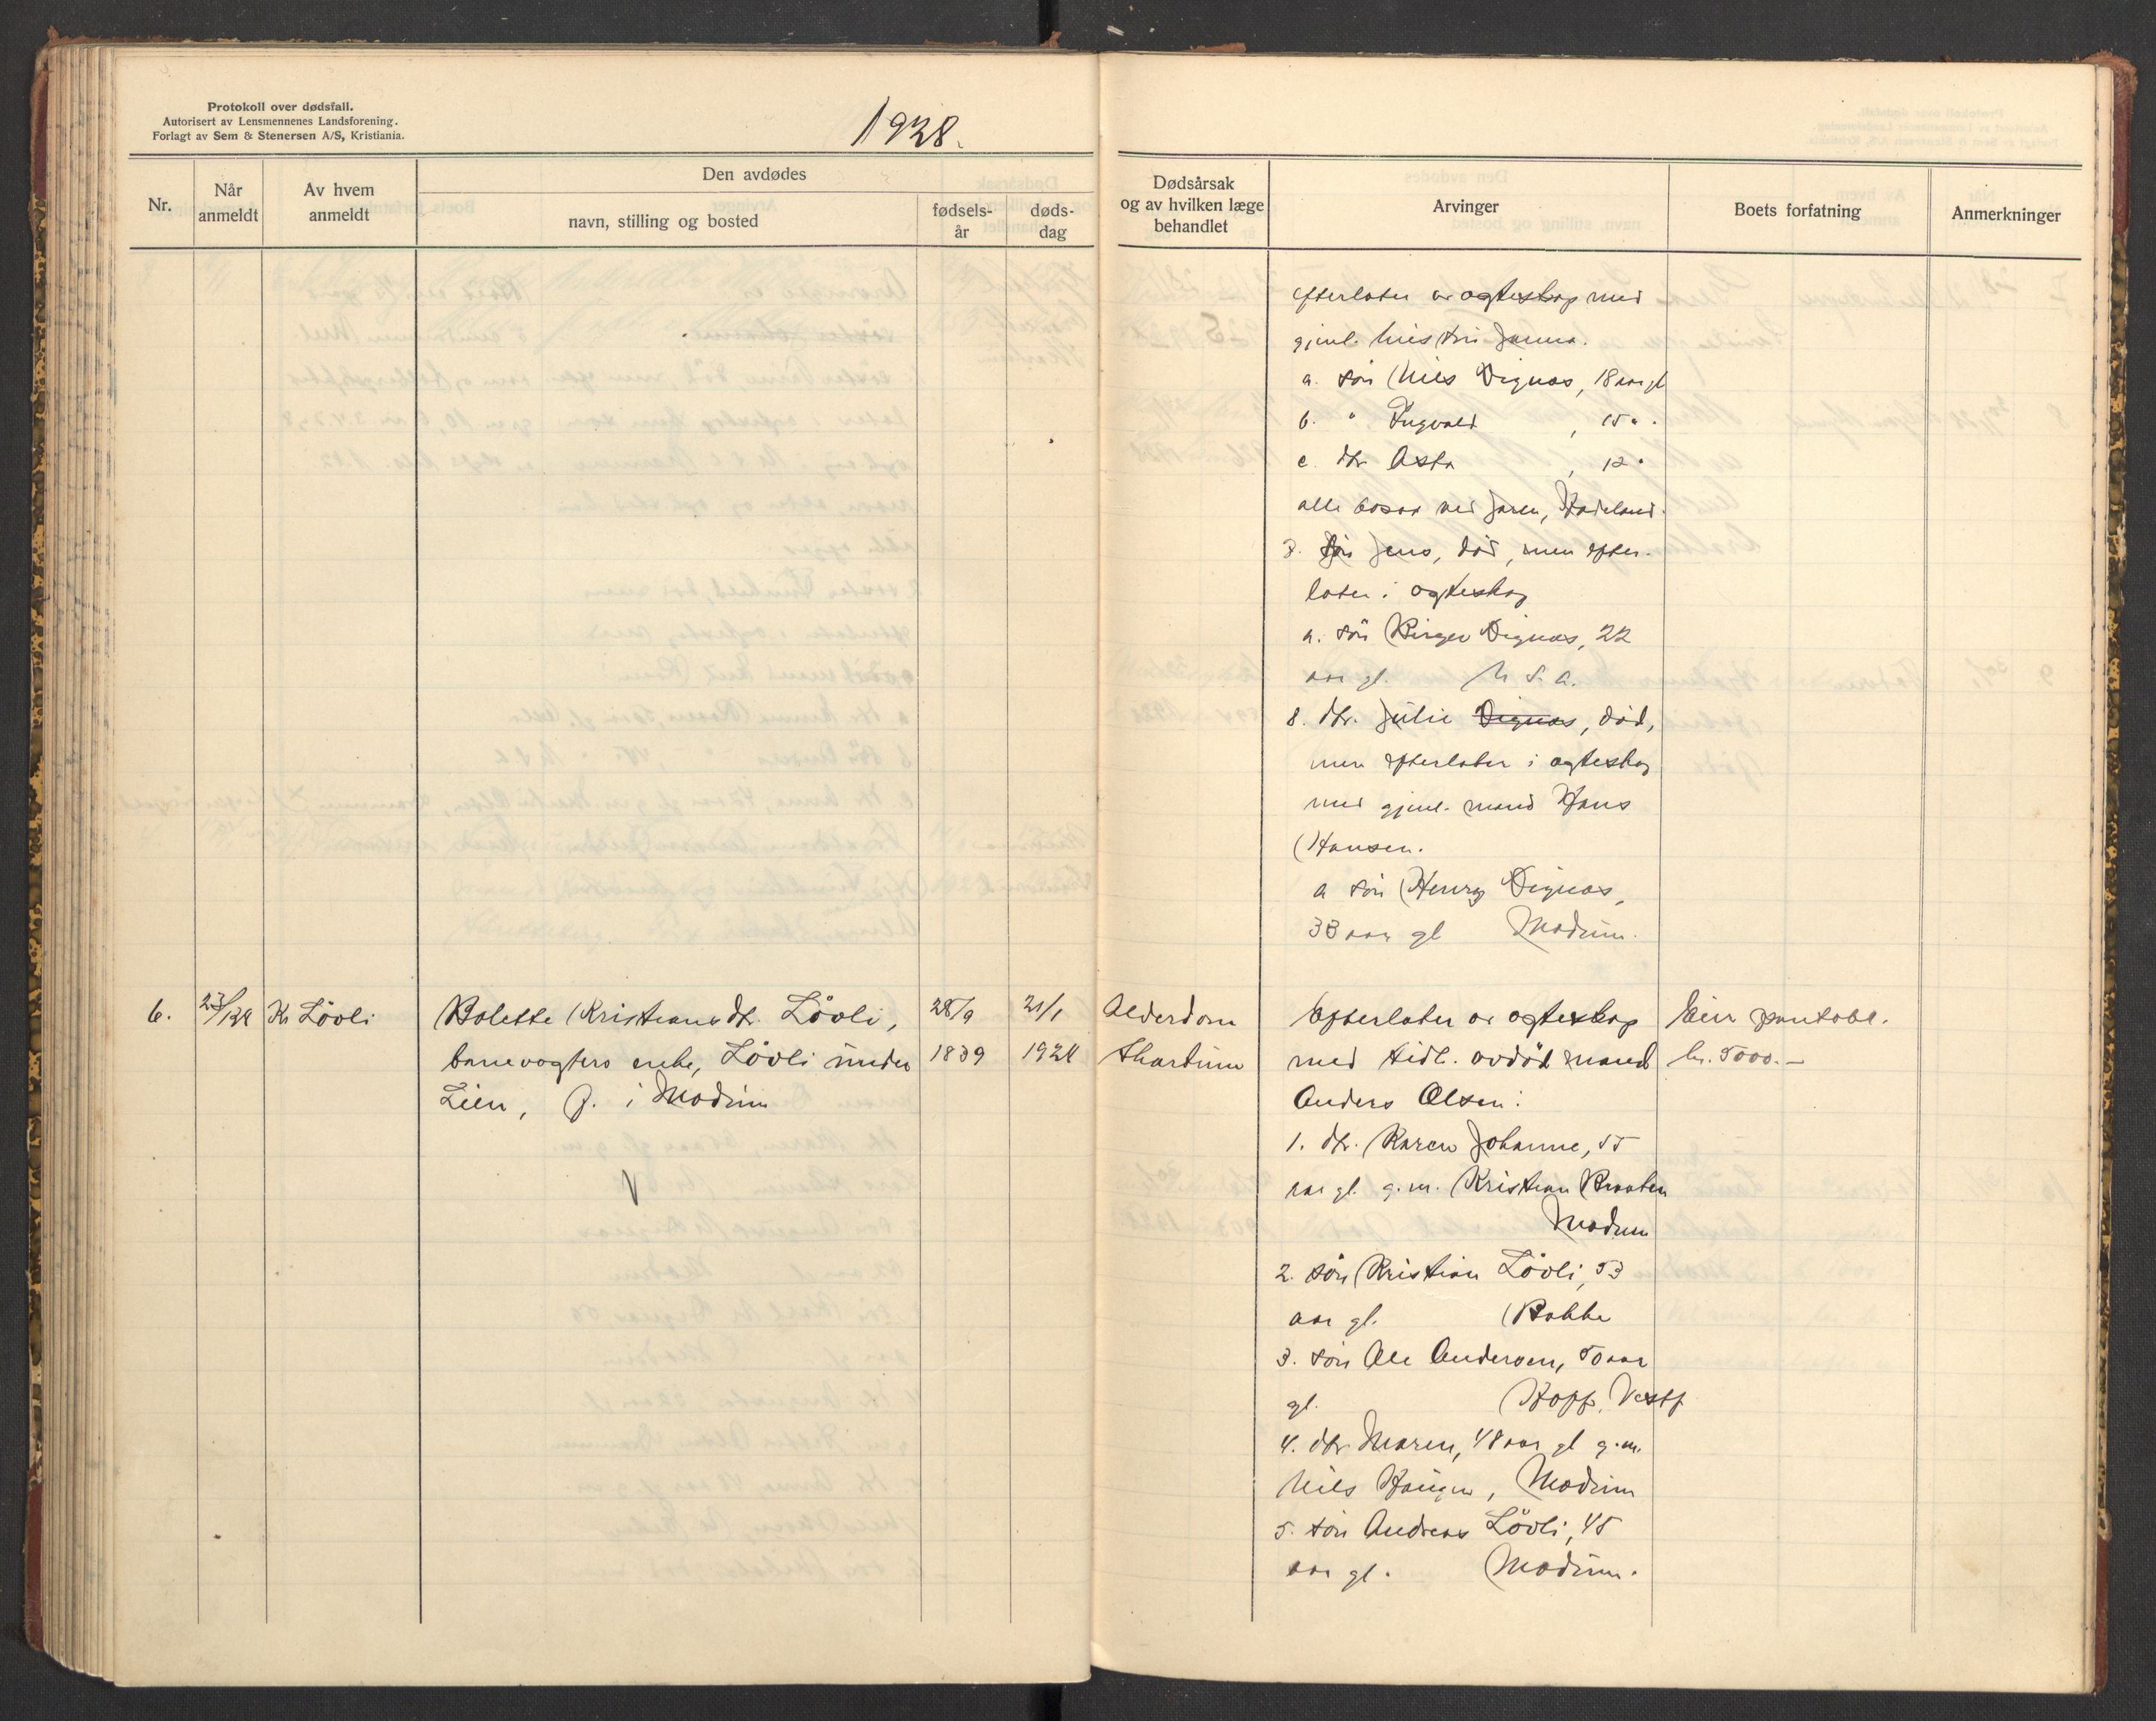 Protokoll over dødsfall.
Autorisert av Lensmennenes Landsforening.
Forlagt av Sem & Stenersen A/S, Kristiania.
1928.
Nr.
Når anmeldt
Av hvem anmeldt
Den avdødes
navn, stilling og bosted
fødsels-år
døds-dag
Dødsårsak og av hvilken læge behandlet
Arvinger
Boets forfatning
Anmerkninger
efterlater av ægteskap med
gjenl. hustru Janna.
a. søn Nils Dignæs, 18 aar gl
b. " Ingvald, 15 " .
c. dtr Asta, 12 "
alle bosat ved Jaren, Hadeland.
7. søn Jens, död, men efter-
later i ægteskap
a. søn Birger Dignæs, 22
aar gl. U. S. A.
8. dtr. Julie Dignæs, död,
men efterlater i ægteskap
med gjenl. mand Hans
Hansen.
a søn Henry Dignæs,
33 aar gl Modum.
6.
23/1 28
K. Lövli
Bolette Kristiansdtr. Lövli,
banevogters enke, Lövli under
Lien, p. i Modum
28/9
1839
21/1
1928
Alderdom
Efterlater av ægteskap
med tidl. avdöd mand
Anders Olsen:
1. dtr. Karen Johanne, 55
aar gl. g. m. Kristian Braaten
Modum
2. søn Kristian Lövli, 53
aar gl. Bakke
3. søn Ole Andersen, 50 aar
gl. Kopp. Vestf
4. dtr Maren, 48 aar gl g. m.
Nils Haugen, Modum
5. søn Andreas Lövli, 45
aar gl. Modum.
Eier pantobl.
kr. 5000.-